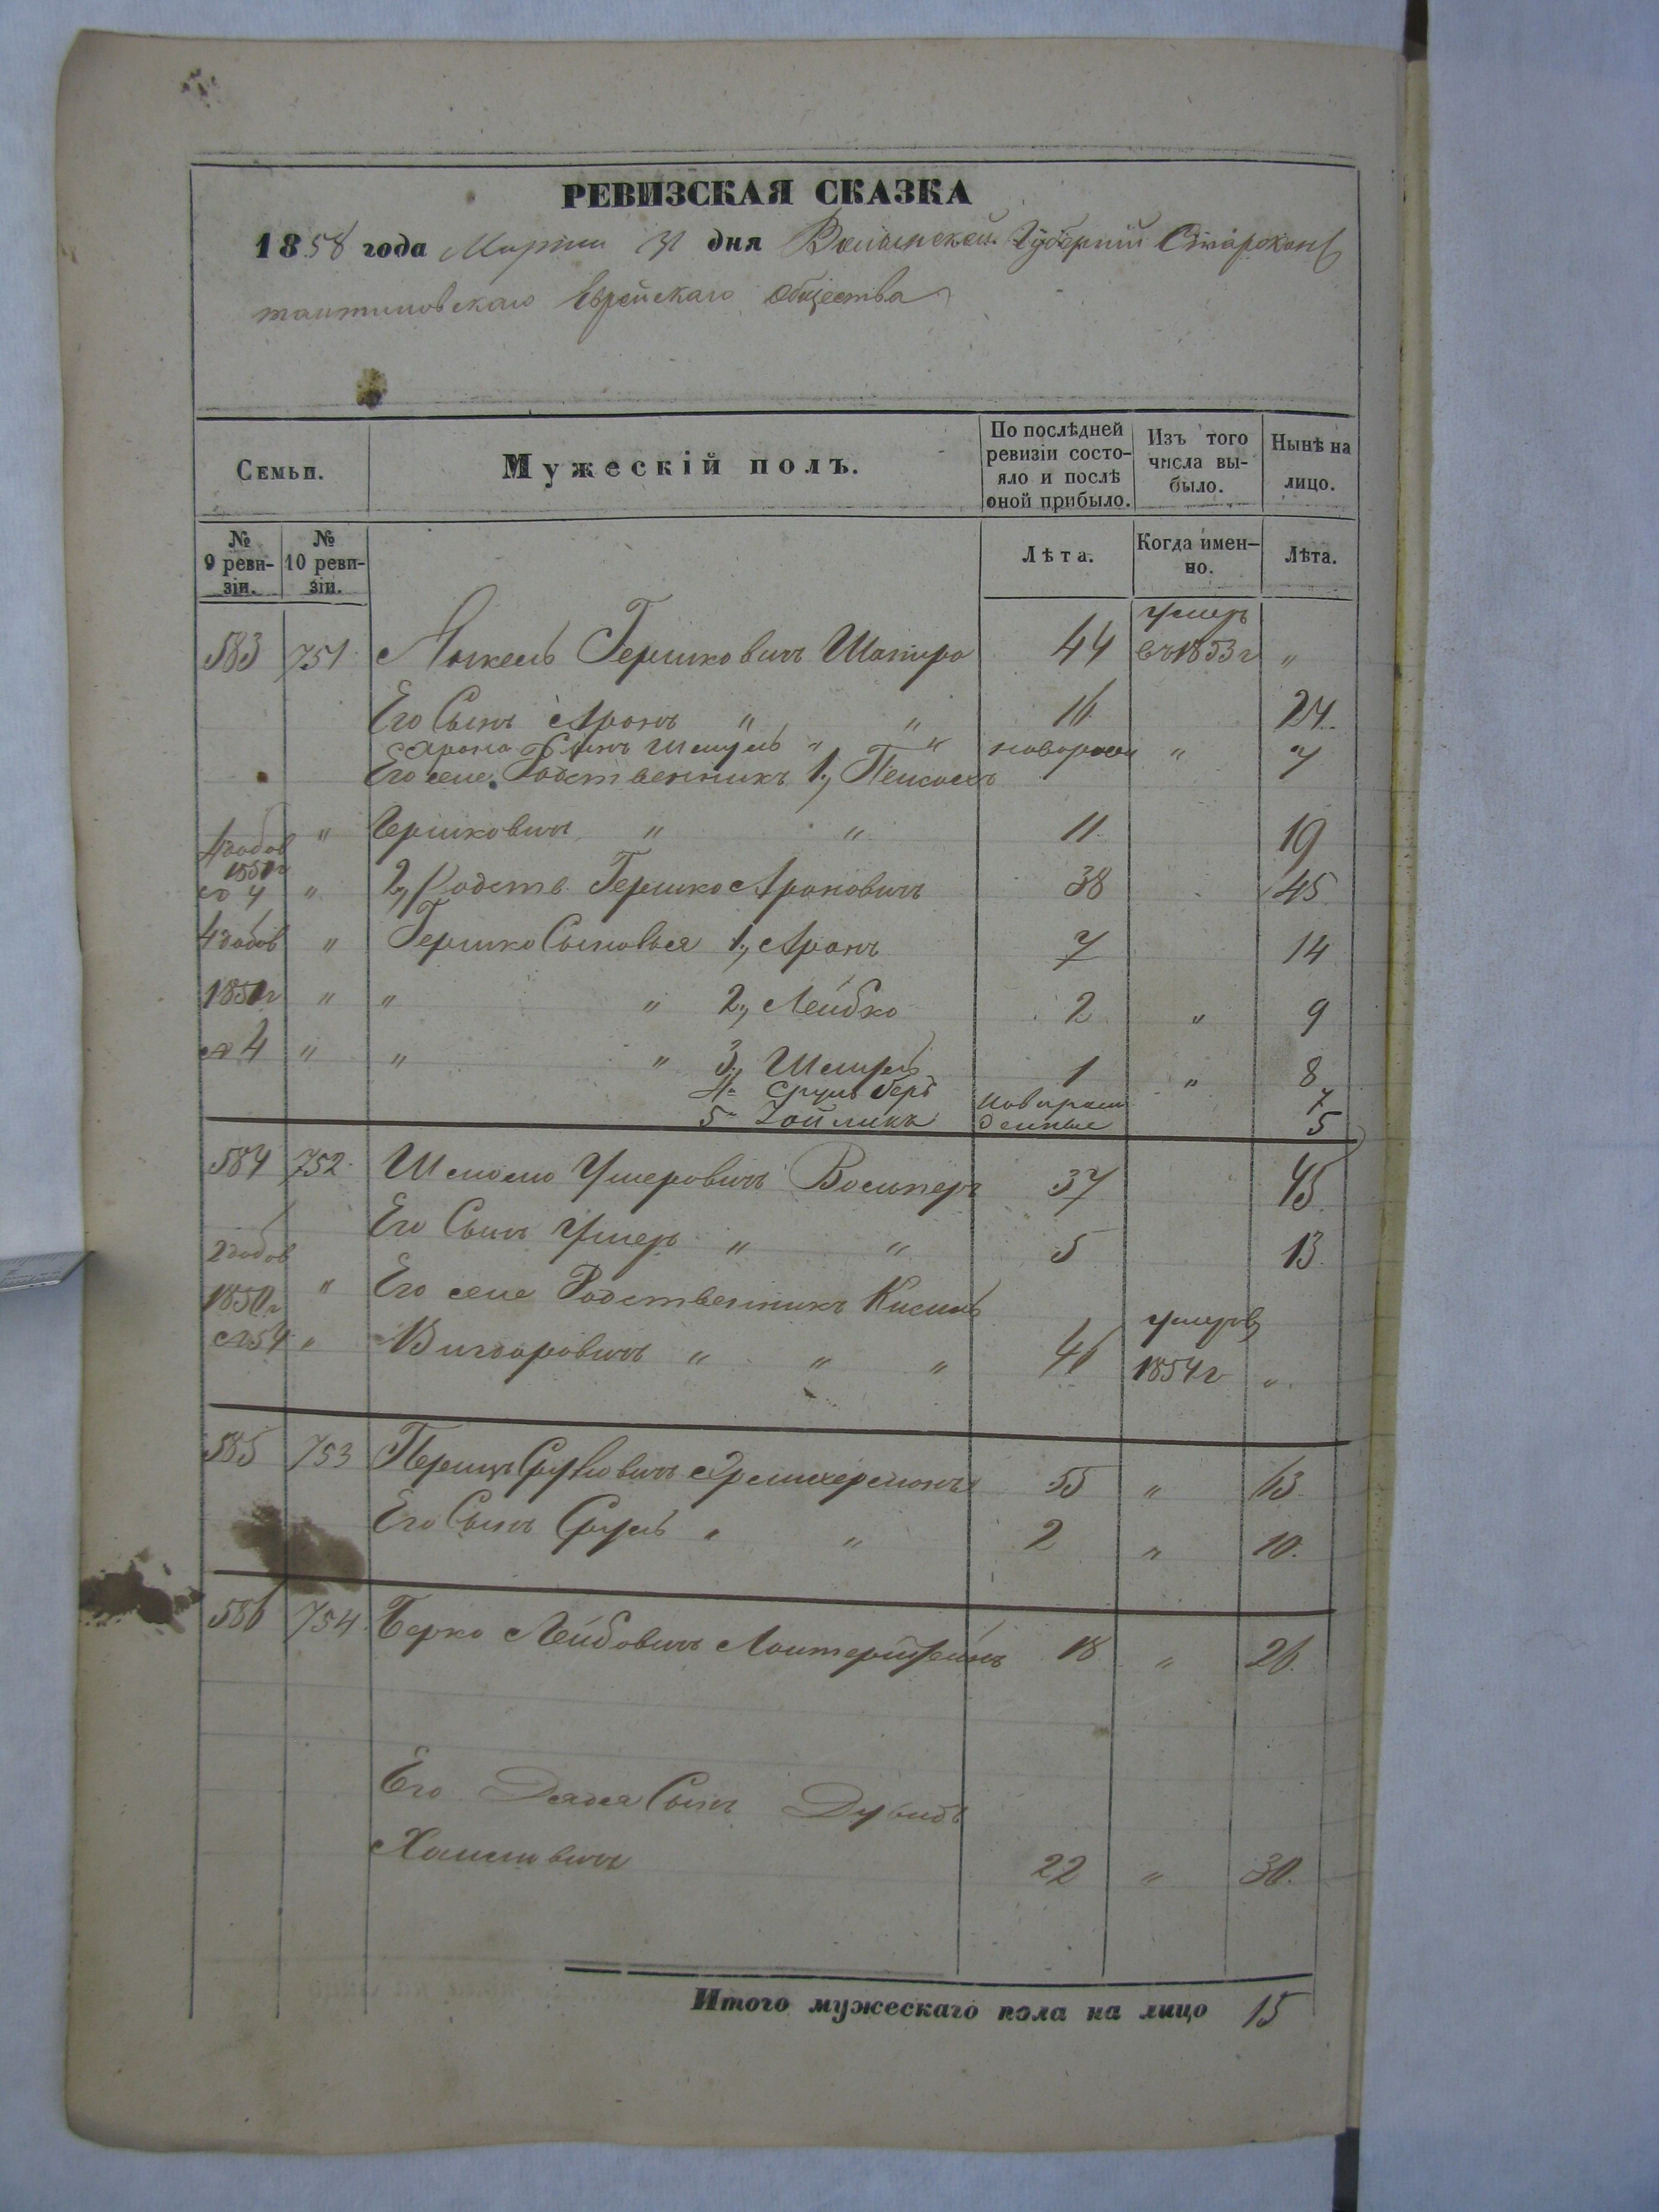 РЕВИЗСКАЯ СКАЗКА
1858 года Марта 31 дня Волынской Губерніи Старокон
тантиновскаго Еврейскаго Общества
Семьи.
Мужескій полъ.
По послѣдней ревизіи состо-
яло и послѣ оной прибыло.
Изъ того числа вы-
было.
Нынѣ на лицо.
№ 9 реви-
зіи.
№ 10 реви-
зіи.
Лѣта.
Когда имен-
но.
Лѣта.
583 751 Янкель Гершковичъ Шапиро 44 умеръ въ 1853 г "
Его Сынъ Аронъ " " 16 24
Арона Сынъ Шмуль " " новорожд " 7
Его семе. Родственникъ 1., Пейсахъ
" Гершковичъ " " 11 19
4 добов 1850 г № 4 " 2., Родств. Гершко Ароновичъ 38 45
4 добов " Гершко Сыновья 1., Аронъ 7 14
1850 г " " " 2., Лейбко 2 " 9
№ 4 " " " 3., Шмуль 1 " 8
4- Сруль Беръ новорож 7
5- Зойликъ денные 5
584 752 Шлиомо Ушеровичъ 37 45
Его Сынъ Ушеръ " " 5 13
2 добов
1850 г " Его семе Родственникъ Кисиль
№ 54 " Вигдоровичъ " " " 46 умеръ въ 1854 г "
585 753 Перецъ Срулювичъ 55 " 63
Его Сынъ Сруль " " 2 " 10.
586 754 Берко Лейбовичъ Лоитерштейнъ 18 " 26.
Его Дядя Сынъ Дувидъ
Хаимовичъ 22 " 30.
Итого мужескаго пола на лицо 15